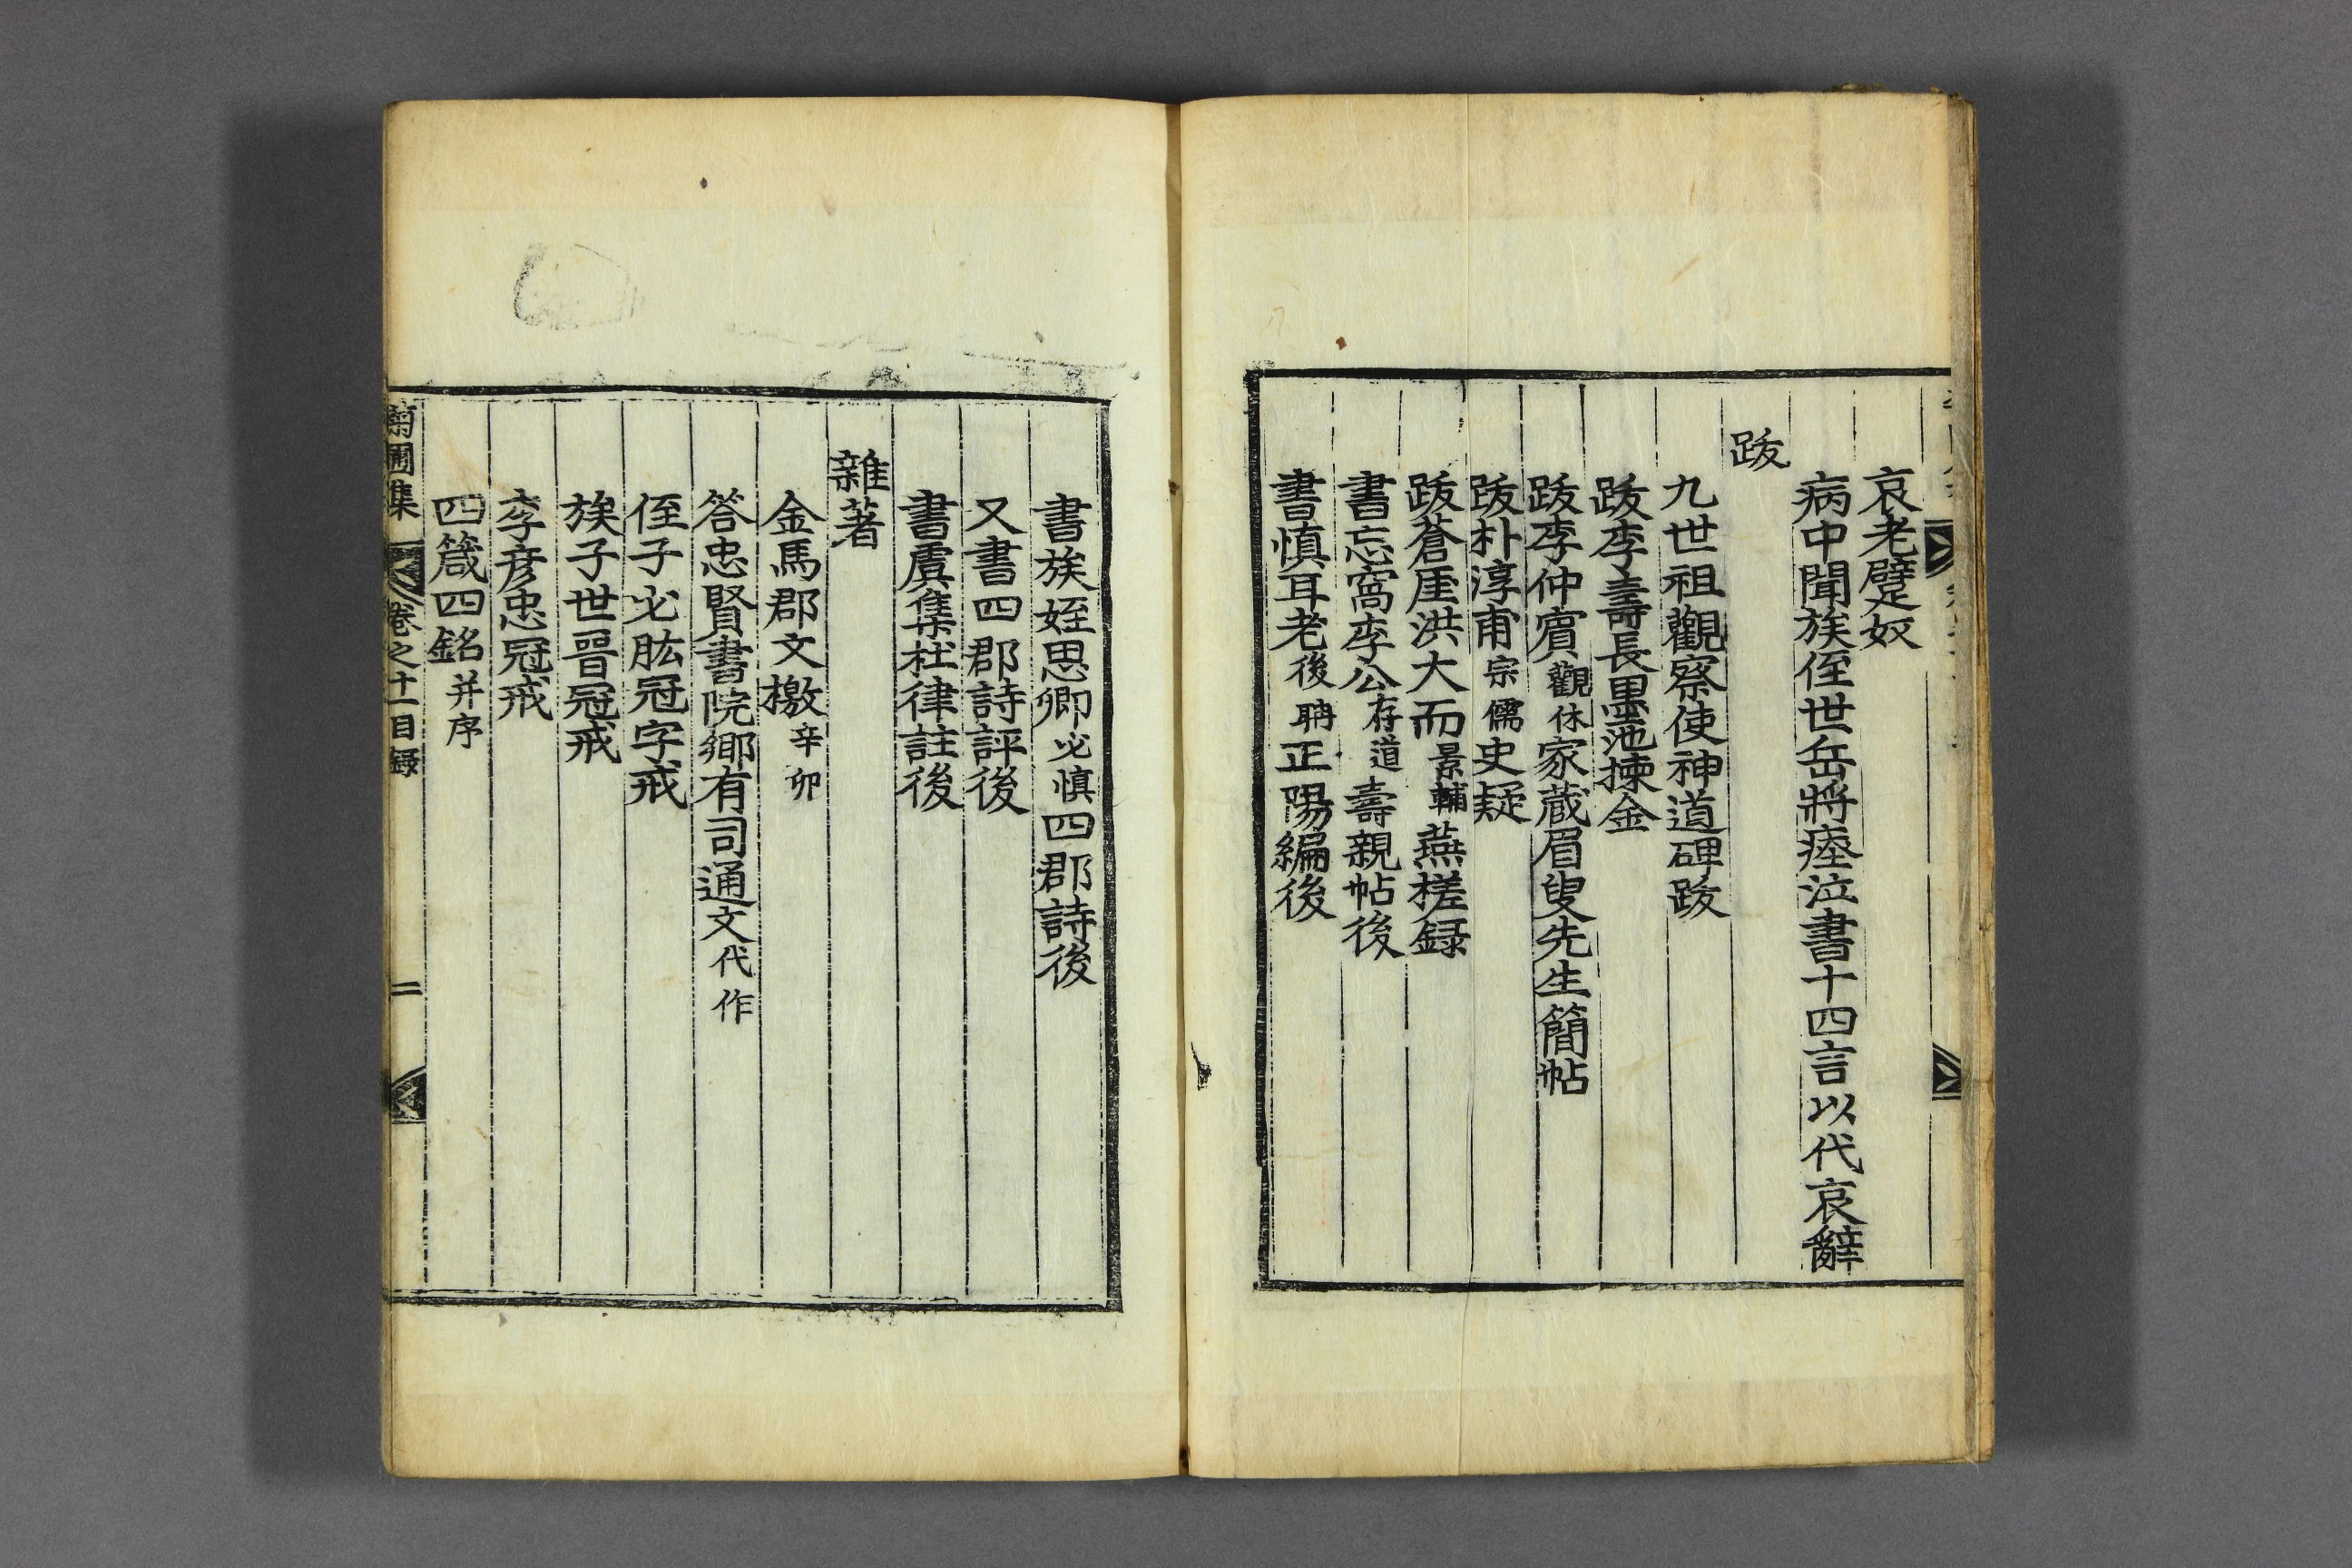 哀老躄奴
病中聞族侄世岳將瘞泣書十四言以代哀辭
跋
九世祖觀察使神道碑跋
跋李壽長墨池揀金
跋李仲賓觀休家蔵眉叟先生簡帖
跋朴淳甫宗儒史疑
跋蒼厓洪大而景輔燕槎録
書忘窩李公存道壽親帖後
書慎耳老後聃正陽編後
書族姪思卿必慎四郡詩後
又書四郡詩評後
書虞集杜律註後
雜著
金馬郡文檄辛卯
答忠賢書院鄉有司通文代作
侄子必肱冠字戒
族子世晉冠戒
李彦忠冠戒
四箴四銘并序
菊圃集 卷之十一目録 二